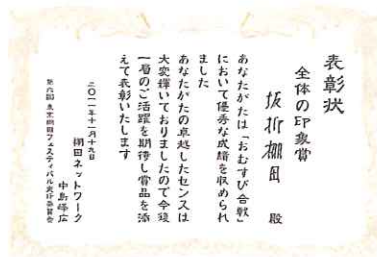 表彰状
全体の印象賞
坂折棚田 殿
あなたがたは「おむすび合戦」
において優秀な成績を収められ
ました
あなたがたの卓越したセンスは
大変輝いておりましたので今後
一層のご活躍を期待し賞品を添
えて表彰いたします
二〇一一年十一月十九日
棚田ネットワーク
中島峰広